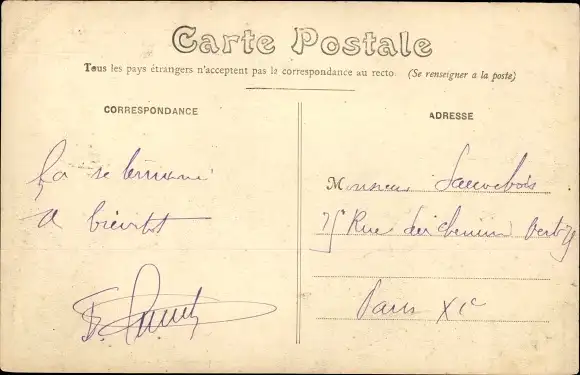 Carte Postale
Tous les pays étrangers n'acceptent pas la correspondance au recto. (Se renseigner a la poste)
CORRESPONDANCE
ADRESSE
Ça se termine
A bientôt
Monsieur
75 Rue du Chemin Vert
Paris XIe